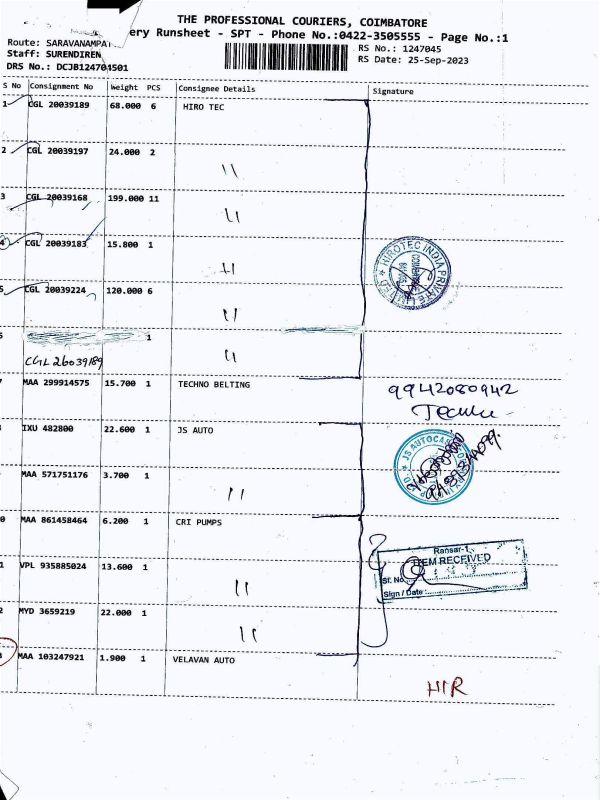 THE PROFESSIONAL COURIERS, COIMBATORE
ery Runsheet - SPT - Phone No.:0422-3505555 - Page No.:1
Route: SARAVANAMPA
RS No.: 1247045
Staff: SURENDIREN
RS Date: 25-Sep-2023
DRS No.: DCJB124704501
S No Consignment No Weight PCS Consignee Details Signature
1 CGL 20039189 68.000 6 HIRO TEC
2 CGL 20039197 24.000 2 11
3 CGL 20039168 199.000 11 11
4 CGL 20039183 15.800 1 11
HIROTEC INDIA PRIVATE LIMITED
5 CGL 20039224 120.000 6 11
1
CGL26039189 11
MAA 299914575 15.700 1 TECHNO BELTING
9942080942
IXU 482800 22.600 1 JS AUTO
JS AUTOCAST
MAA 571751176 3.700 1 11
0 MAA 861458464 6.200 1 CRI PUMPS
Ransar-1
ITEM RECEIVED
1 VPL 935885024 13.600 1 11
Sl. No.
Sign / Date
2 MYD 3659219 22.000 1 11
3 MAA 103247921 1.900 1 VELAVAN AUTO
HR